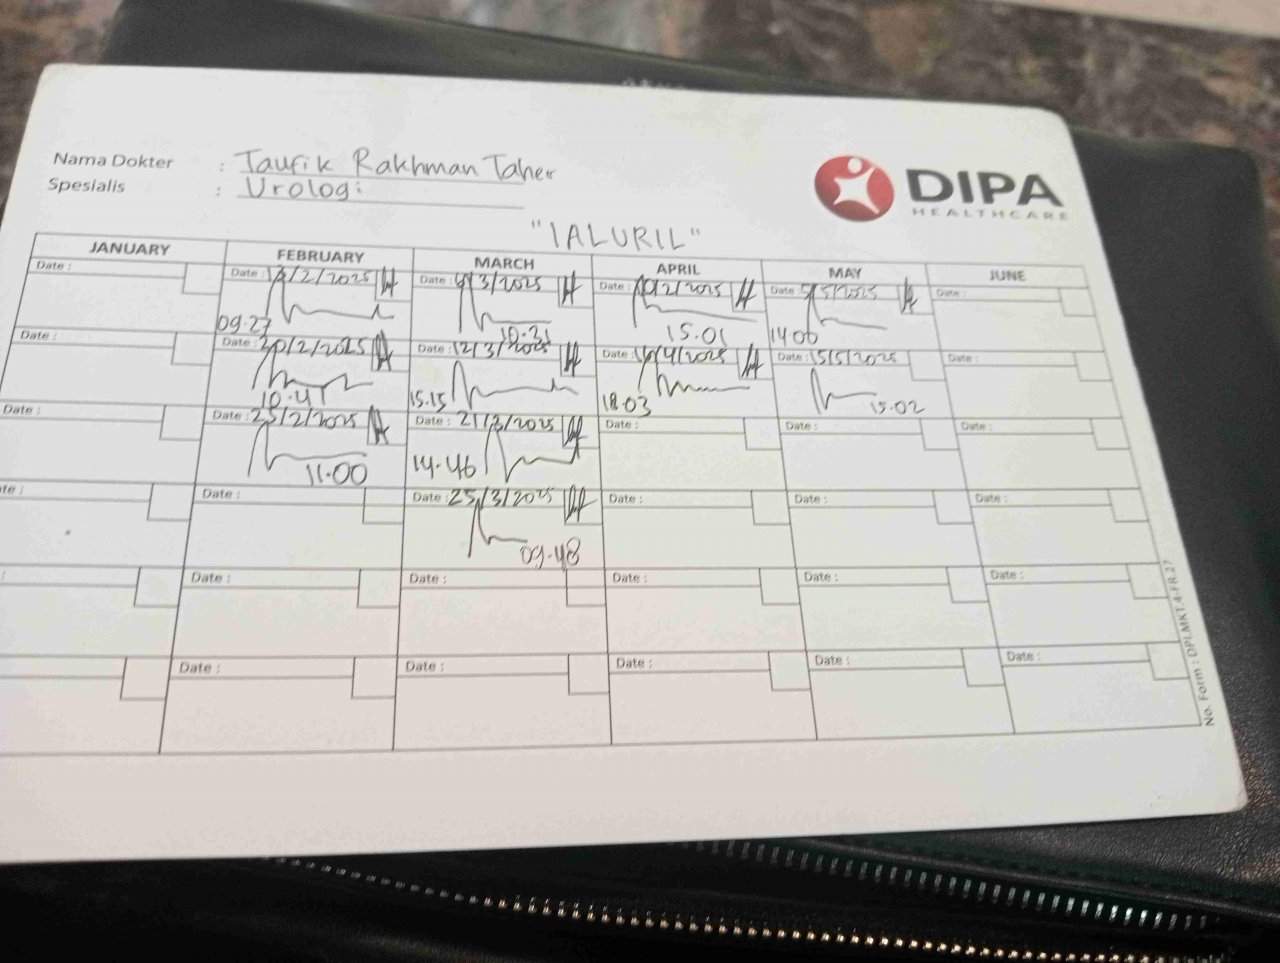 Nama Dokter : Taufik Rakhman Taher
Spesialis : Urologi
DIPA
HEALTHCARE
"IALURIL"
JANUARY FEBRUARY MARCH APRIL MAY JUNE
Date : Date : /2/2025 Date : /3/2025 Date : 10/2/2025 Date 5/5/2025 Date :
09.27 10.31 15.01 1406
Date : Date : 20/2/2025 Date : 12/3/2025 Date : /4/2025 Date : 15/5/2025 Date :
10.41 15.15 18.03 15.02
Date : Date : 25/2/2025 Date : 21/3/2025 Date : Date : Date :
11.00 14.46
te : Date : Date : 25/3/2025 Date : Date : Date :
09.48
: Date : Date : Date : Date : Date :
Date : Date : Date : Date : Date :
No. Form : DPI.MKT.4-FR.27